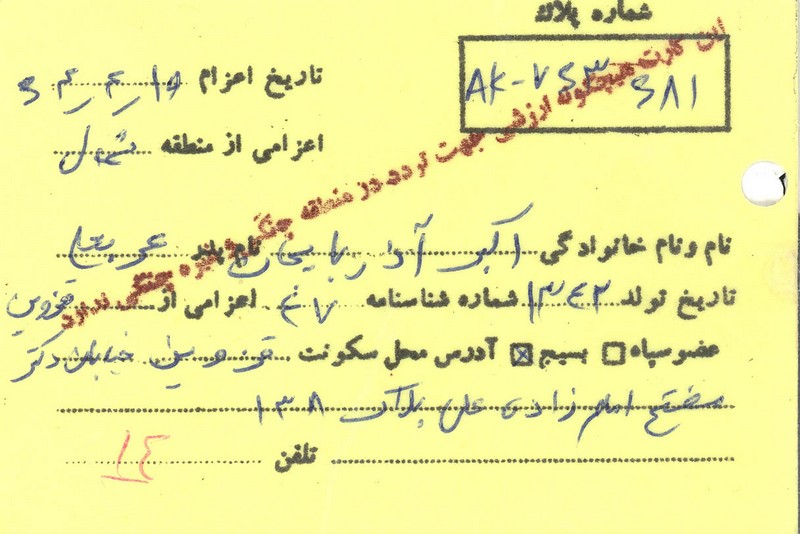 شماره پلاک
AK-۷۶۳ ۶۸۱
تاریخ اعزام
اعزامی از منطقه شمال
این کارت هیچگونه ارزشی جهت تردد در منطقه جنگی و غیره جنگی ندارد
نام ونام خانوادگی اکبر آذربایجانی نام پدر
تاریخ تولد ۱۳۴۲ شماره شناسنامه اعزامی از قزوین
عضو سپاه بسیج آدرس محل سکونت قزوین خیابان دکتر
مفتح امام زاده علی پلاک ۱۳۸
تلفن
۱۴